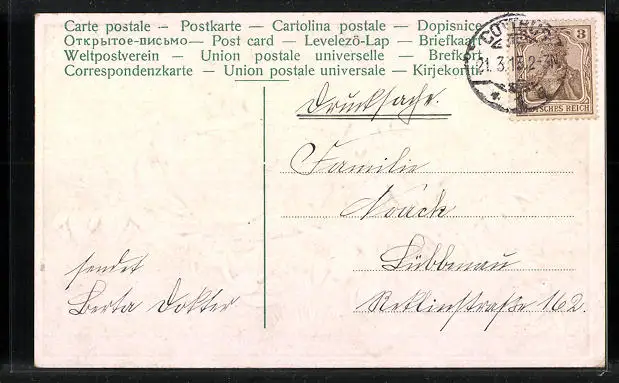 Carte postale — Postkarte — Cartolina postale — Dopisnice
Открытое-письмо — Post card — Levelező-Lap — Briefkaart
Weltpostverein — Union postale universelle — Brefkort
Correspondenzkarte — Union postale universale — Kirjekortti
COTTBUS
21.3.13.2-3N
3
DEUTSCHES REICH
Drucksache.
Familie
Noack
Lübbenau
162.
sendet
Berta Dokter